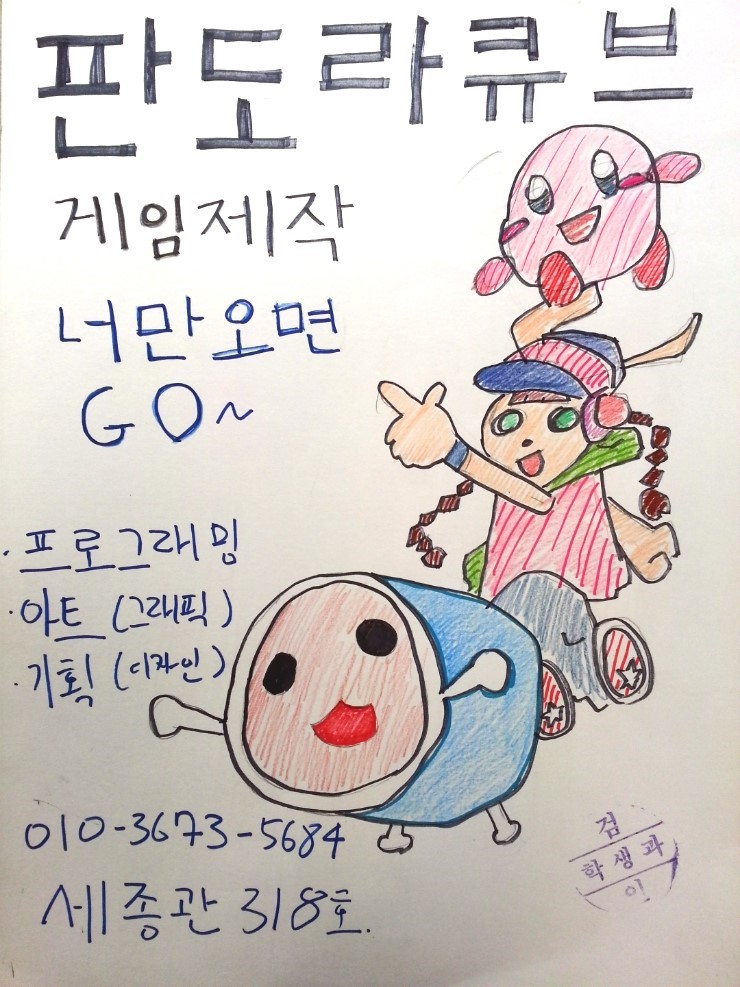 판도라큐브
게임제작
너만오면
GO~
· 프로그래밍
· 아트 (그래픽)
· 기획 (디자인)
010-3673-5684
세종관 318호.
검
학생과
인